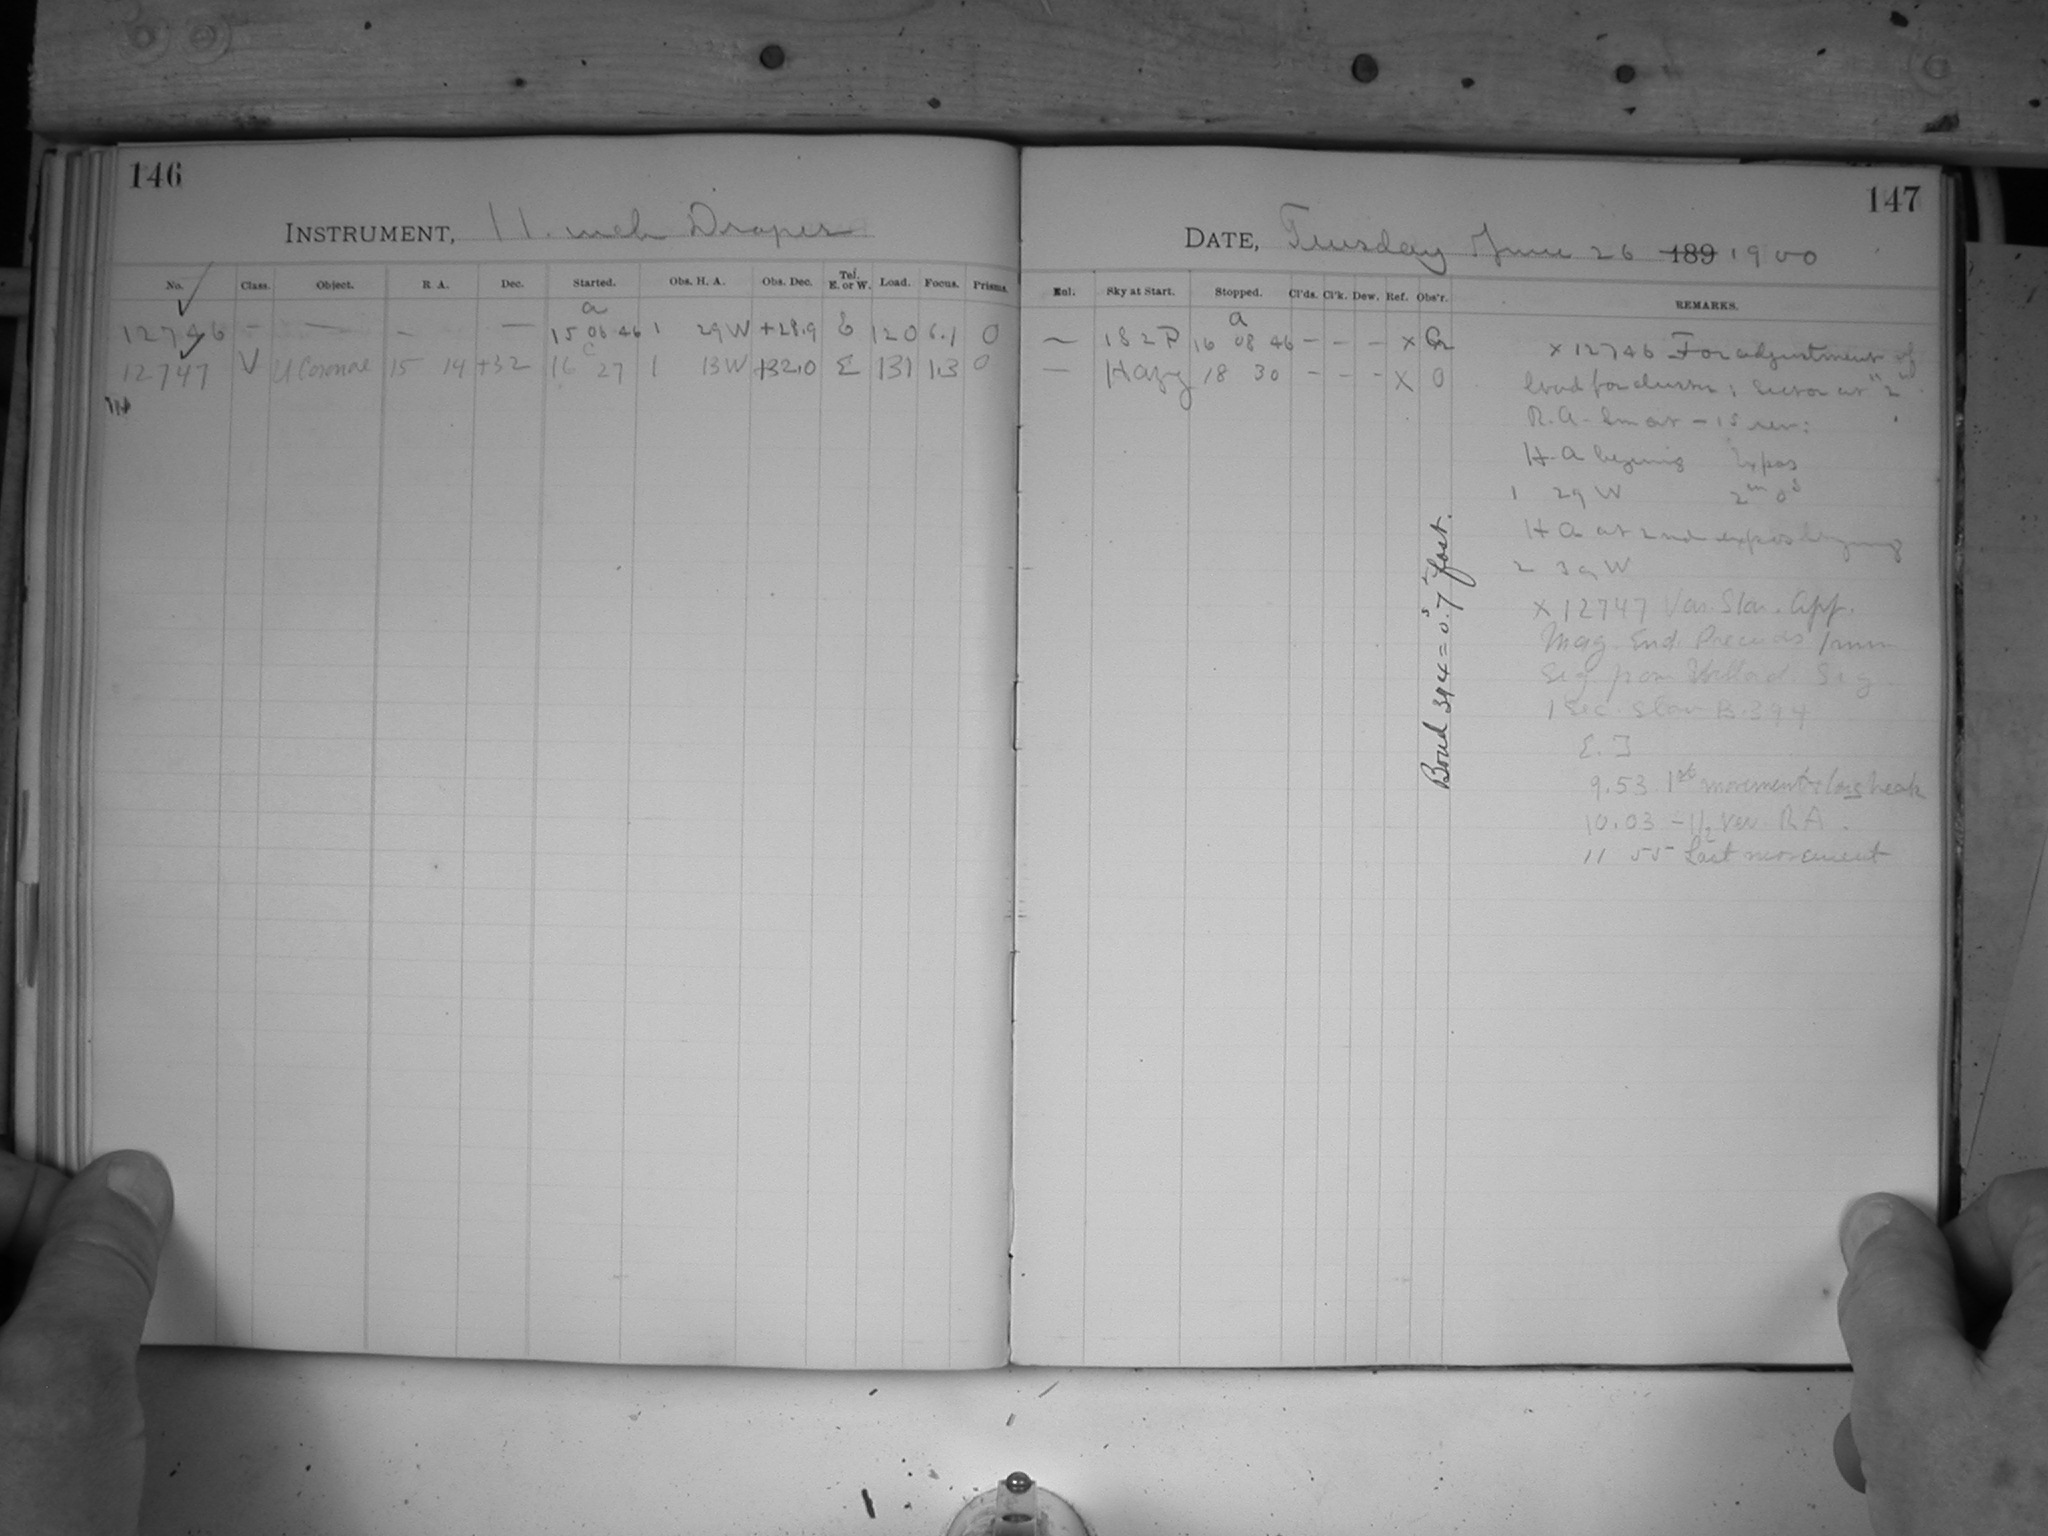 146
INSTRUMENT, 11. inch Draper
No. Class. Object. R. A. Dec. Started. Obs. H. A. Obs. Dec. Tel. E. or W. Load. Focus. Prisms.
a
12746 – — – — 15 08 46 1 29 W +28.9 E 120 6.1 0
c
12747 V U Coronae 15 14 +32 16 27 1 13 W +32.0 E 131 1.3 0
147
DATE, Tuesday June 26 189 1900
Enl. Sky at Start. Stopped. Cl'ds. Cl'k. Dew. Ref. Obs'r. REMARKS.
a
— 182 P 16 08 46 – – – x
— Hazy 18 30 – – – X 0
x 12746 For adjustment of
load for cluster; Sector at "2"
R.A. – 15 rev:
H A begining Expos
1 29 W 2m 0s
H A at 2nd expos begining
2 39 W
x 12747 Var. Star. App.
Mag. End. Precedes 1mm
Sig. from Sig.
1 Sec. Slow B. 394
9.53 1st movement
10.03 –1½ rev. RA.
11 55 Last movement
Bond 394 = 0.7s fast.